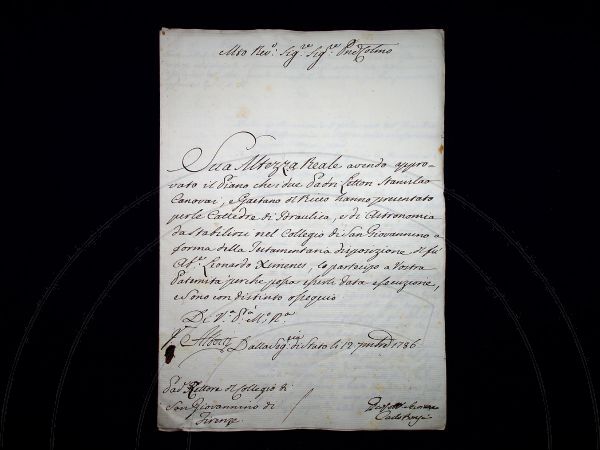 Mto Revo. Sigre Sigre Pne Colmo
Sua Altezza Reale avendo appro-
vato il Piano che i due Padri Lettori Stanislao
Canovai, e Gaetano del Ricco hanno presentato
per le Cattedre di Idraulica, e di Astronomia
da stabilirsi nel Collegio di San Giovannino a
forma della Testamentaria disposizione del fù
Abe. Leonardo Ximenes, lo partecipo a Vostra
Paternità perche possa esservi data esecuzione,
e sono con distinto ossequio
Di V.a P.tà M.o R.a
Dalla Segria. di Stato li 12 1786
Pad. Rettore del Collegio di
San Giovannino di
Firenze